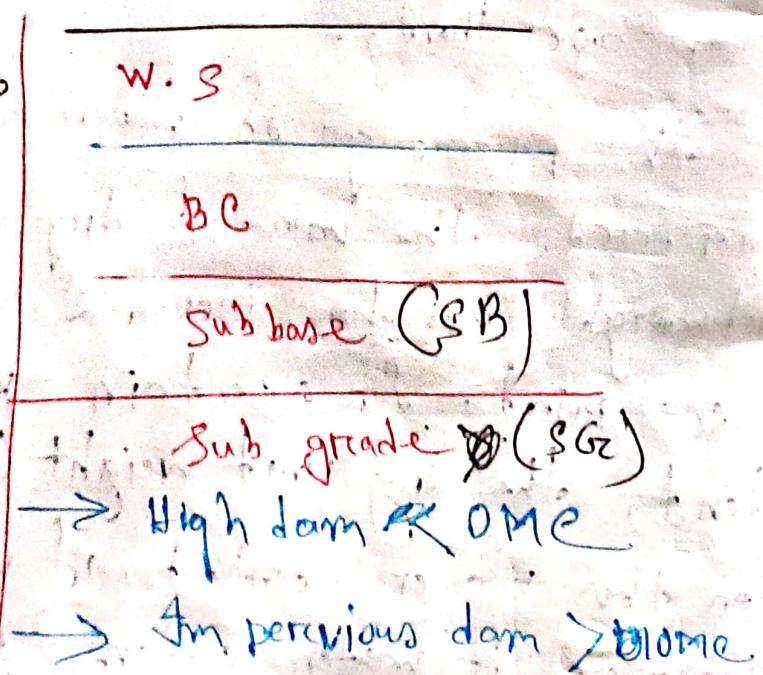 W.S
BC
Subbase (SB)
Sub grade (SG)
→ High dam < OMC
→ Impervious dam > OMC